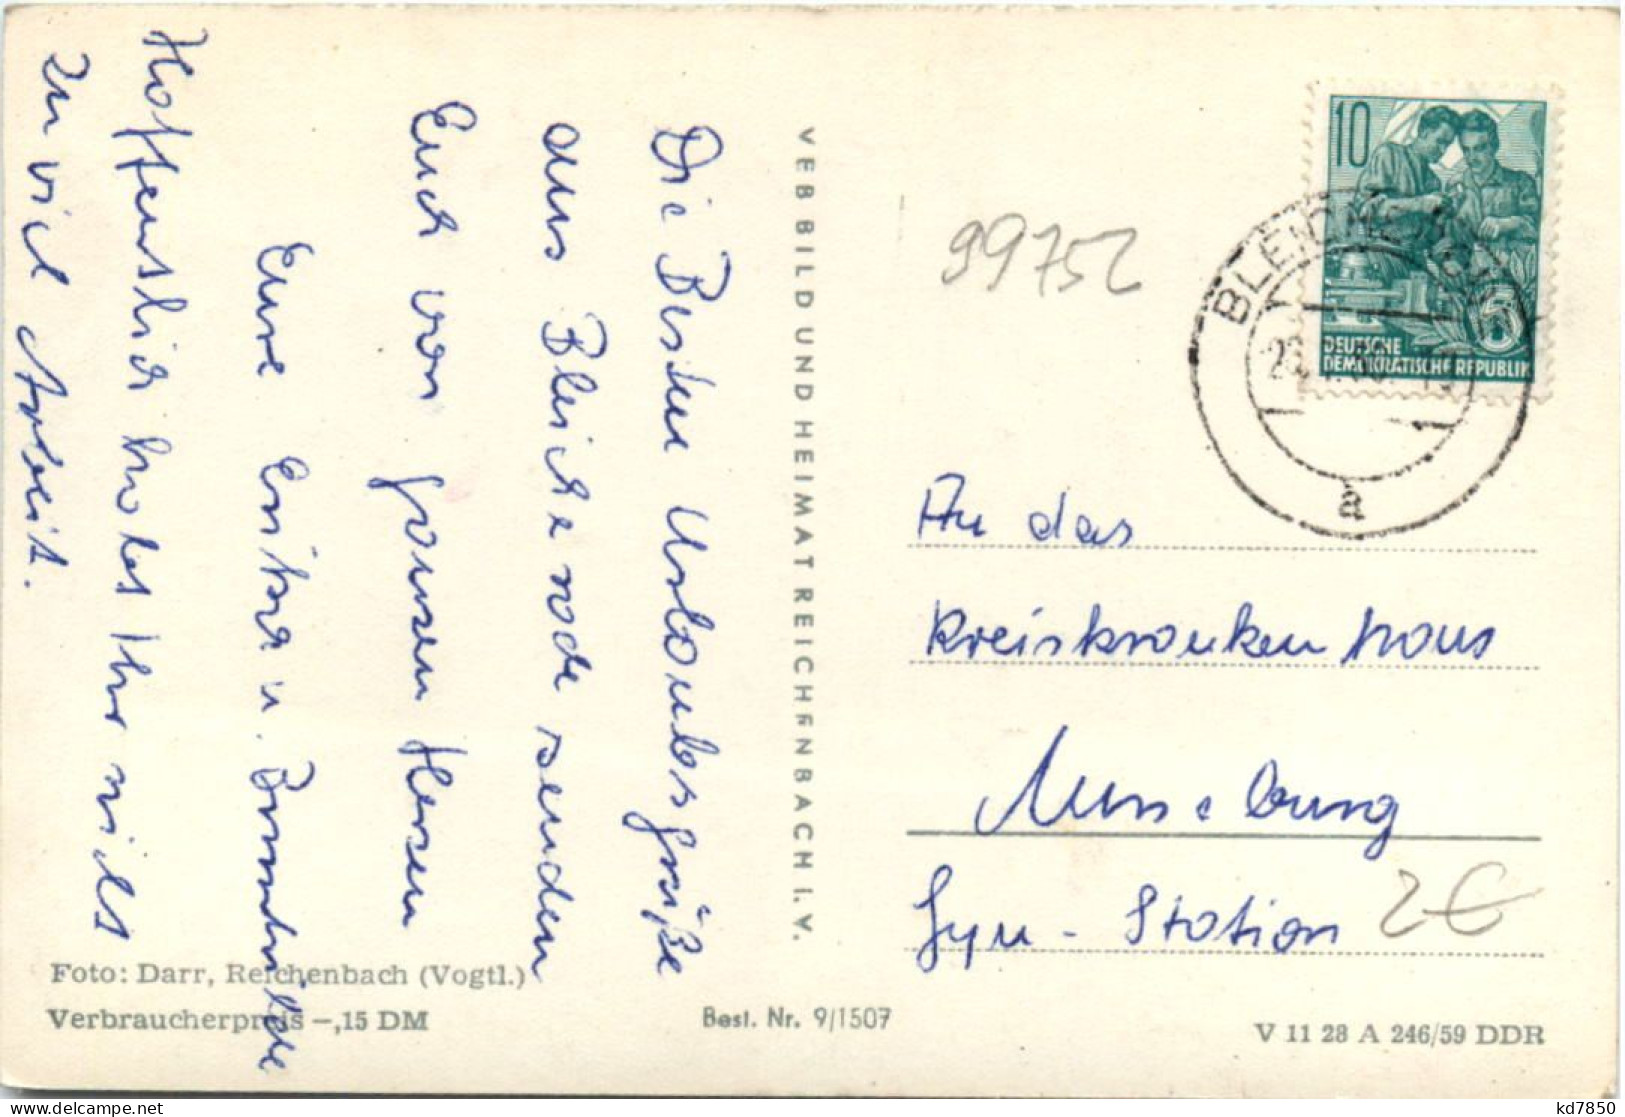 Die Besten Urlaubsgrüße
aus Bleicherode senden
Euch von ganzen Herzen
Eure Erika u. Brunhilde
Hoffentlich habet Ihr nicht
zu viel Arbeit.
VEB BILD UND HEIMAT REICHENBACH I. V.
99752
10
DEUTSCHE
DEMOKRATISCHE REPUBLIK
BLEICHERODE
a
An das
Kreiskrankenhaus
Gyn - Station
2€
Foto: Darr, Reichenbach (Vogtl.)
Verbraucherpreis -,15 DM
Best. Nr. 9/1507
V 11 28 A 246/59 DDR
kd7850